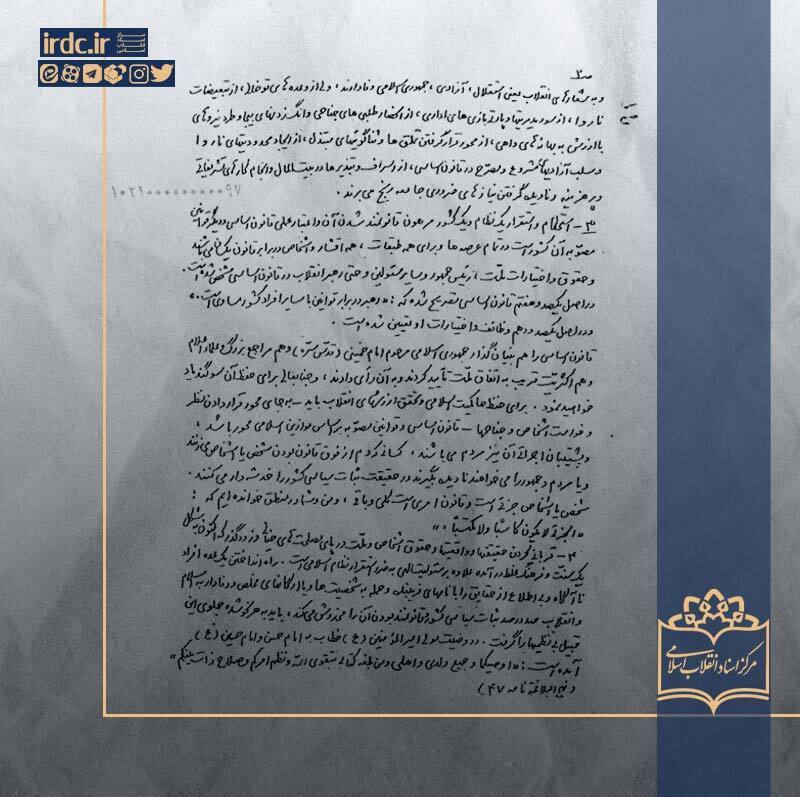 irdc.ir
مرکز اسناد انقلاب اسلامی
ص ۲
و به شعارهای انقلاب یعنی استقلال، آزادی، جمهوری اسلامی وفادارند، ولی از وعده‌های توخالی، از تبعیضات
ناروا، از سوء مدیریتها و پارتی‌بازی‌های اداری، از انحصارطلبی‌های جناحی و انگ زدنهای بیجا و طرد نیروهای
باارزش به بهانه‌های واهی، از محور قرار گرفتن تملق‌ها و ثناگوئیهای مبتذل، از ایجاد محدودیتهای ناروا
و سلب آزادیهای مشروع و مصرح در قانون اساسی، از اسراف و تبذیرها در بیت‌المال و انجام کارهای تشریفاتی
و پرهزینه و نادیده گرفتن نیازهای ضروری جامعه رنج می‌برند.
۱۰۲۱۰۰۰۰۰۰۰۰۰۹۷
۳- انتظام و استقرار یک نظام و یک کشور مرهون قانونمند شدن آن و اعتبار عملی قانون اساسی و دیگر قوانین
مصوبه آن کشور است در تمام عرصه‌ها و برای همه طبقات، همه اقشار و اشخاص در برابر قانون یکسان می‌باشند
و حقوق و اختیارات ملت، رئیس جمهور و سایر مسئولین و حتی رهبر انقلاب در قانون اساسی مشخص شده است.
در اصل یکصد و هفتم قانون اساسی تصریح شده که: «رهبر در برابر قوانین با سایر افراد کشور مساوی است.»
و در اصل یکصد و دهم وظائف و اختیارات او تعیین شده است.
قانون اساسی را هم بنیان‌گذار جمهوری اسلامی مرحوم امام خمینی (قدس سره) و هم مراجع بزرگ و علماء اعلام
و هم اکثریت قریب به اتفاق ملت تأیید کردند و به آن رأی دادند، و جنابعالی برای حفظ آن سوگند یاد
خواهید نمود. برای حفظ حاکمیت اسلامی و تحقق ارزشهای انقلاب باید - به جای محور قرار دادن نظر
و خواست اشخاص و جناحها - قانون اساسی و قوانین مصوبه بر اساس موازین اسلامی محور باشد،
و پشتیبان اجرائی آن نیز مردم می‌باشند، کسانی که دم از فوق قانون بودن شخص یا اشخاص می‌زنند
و یا مردم و جمهور را می‌خواهند نادیده بگیرند در حقیقت ثبات سیاسی کشور را خدشه‌دار می‌کنند.
شخص یا اشخاص جزئی است و قانون امری است کلی و باقی، و من و شما در منطق خوانده‌ایم که:
«الجزئی لا یکون کاسبا ولا مکتسبا.»
۴- قربانی کردن حقیقتها و واقعیتها و حقوق اشخاص و ملت در پای مصلحت‌های خیالی و زودگذر که اکنون به شکل
یک سنت و فرهنگ غلط درآمده علاوه بر مسئولیت الهی به ضرر استقرار نظام اسلامی است. راه انداختن یک عده افراد
ناآگاه و بی‌اطلاع از حقایق را با نامهای فریبنده و حمله به شخصیت‌ها و یا ارگانهای مخلص و وفادار به اسلام
و انقلاب صددرصد ثبات سیاسی کشور و قانونمند بودن آن را مخدوش می‌کند، باید به هر گونه شده جلوی این
قبیل بی‌نظمیها را گرفت. در وصیت مولی امیرالمؤمنین (ع) خطاب به امام حسن و امام حسین (ع)
آمده است: «اوصیکما و جمیع ولدی و اهلی و من بلغه کتابی بتقوی الله و نظم امرکم و صلاح ذات بینکم»
(نهج البلاغه نامه ۴۷)
مرکز اسناد انقلاب اسلامی